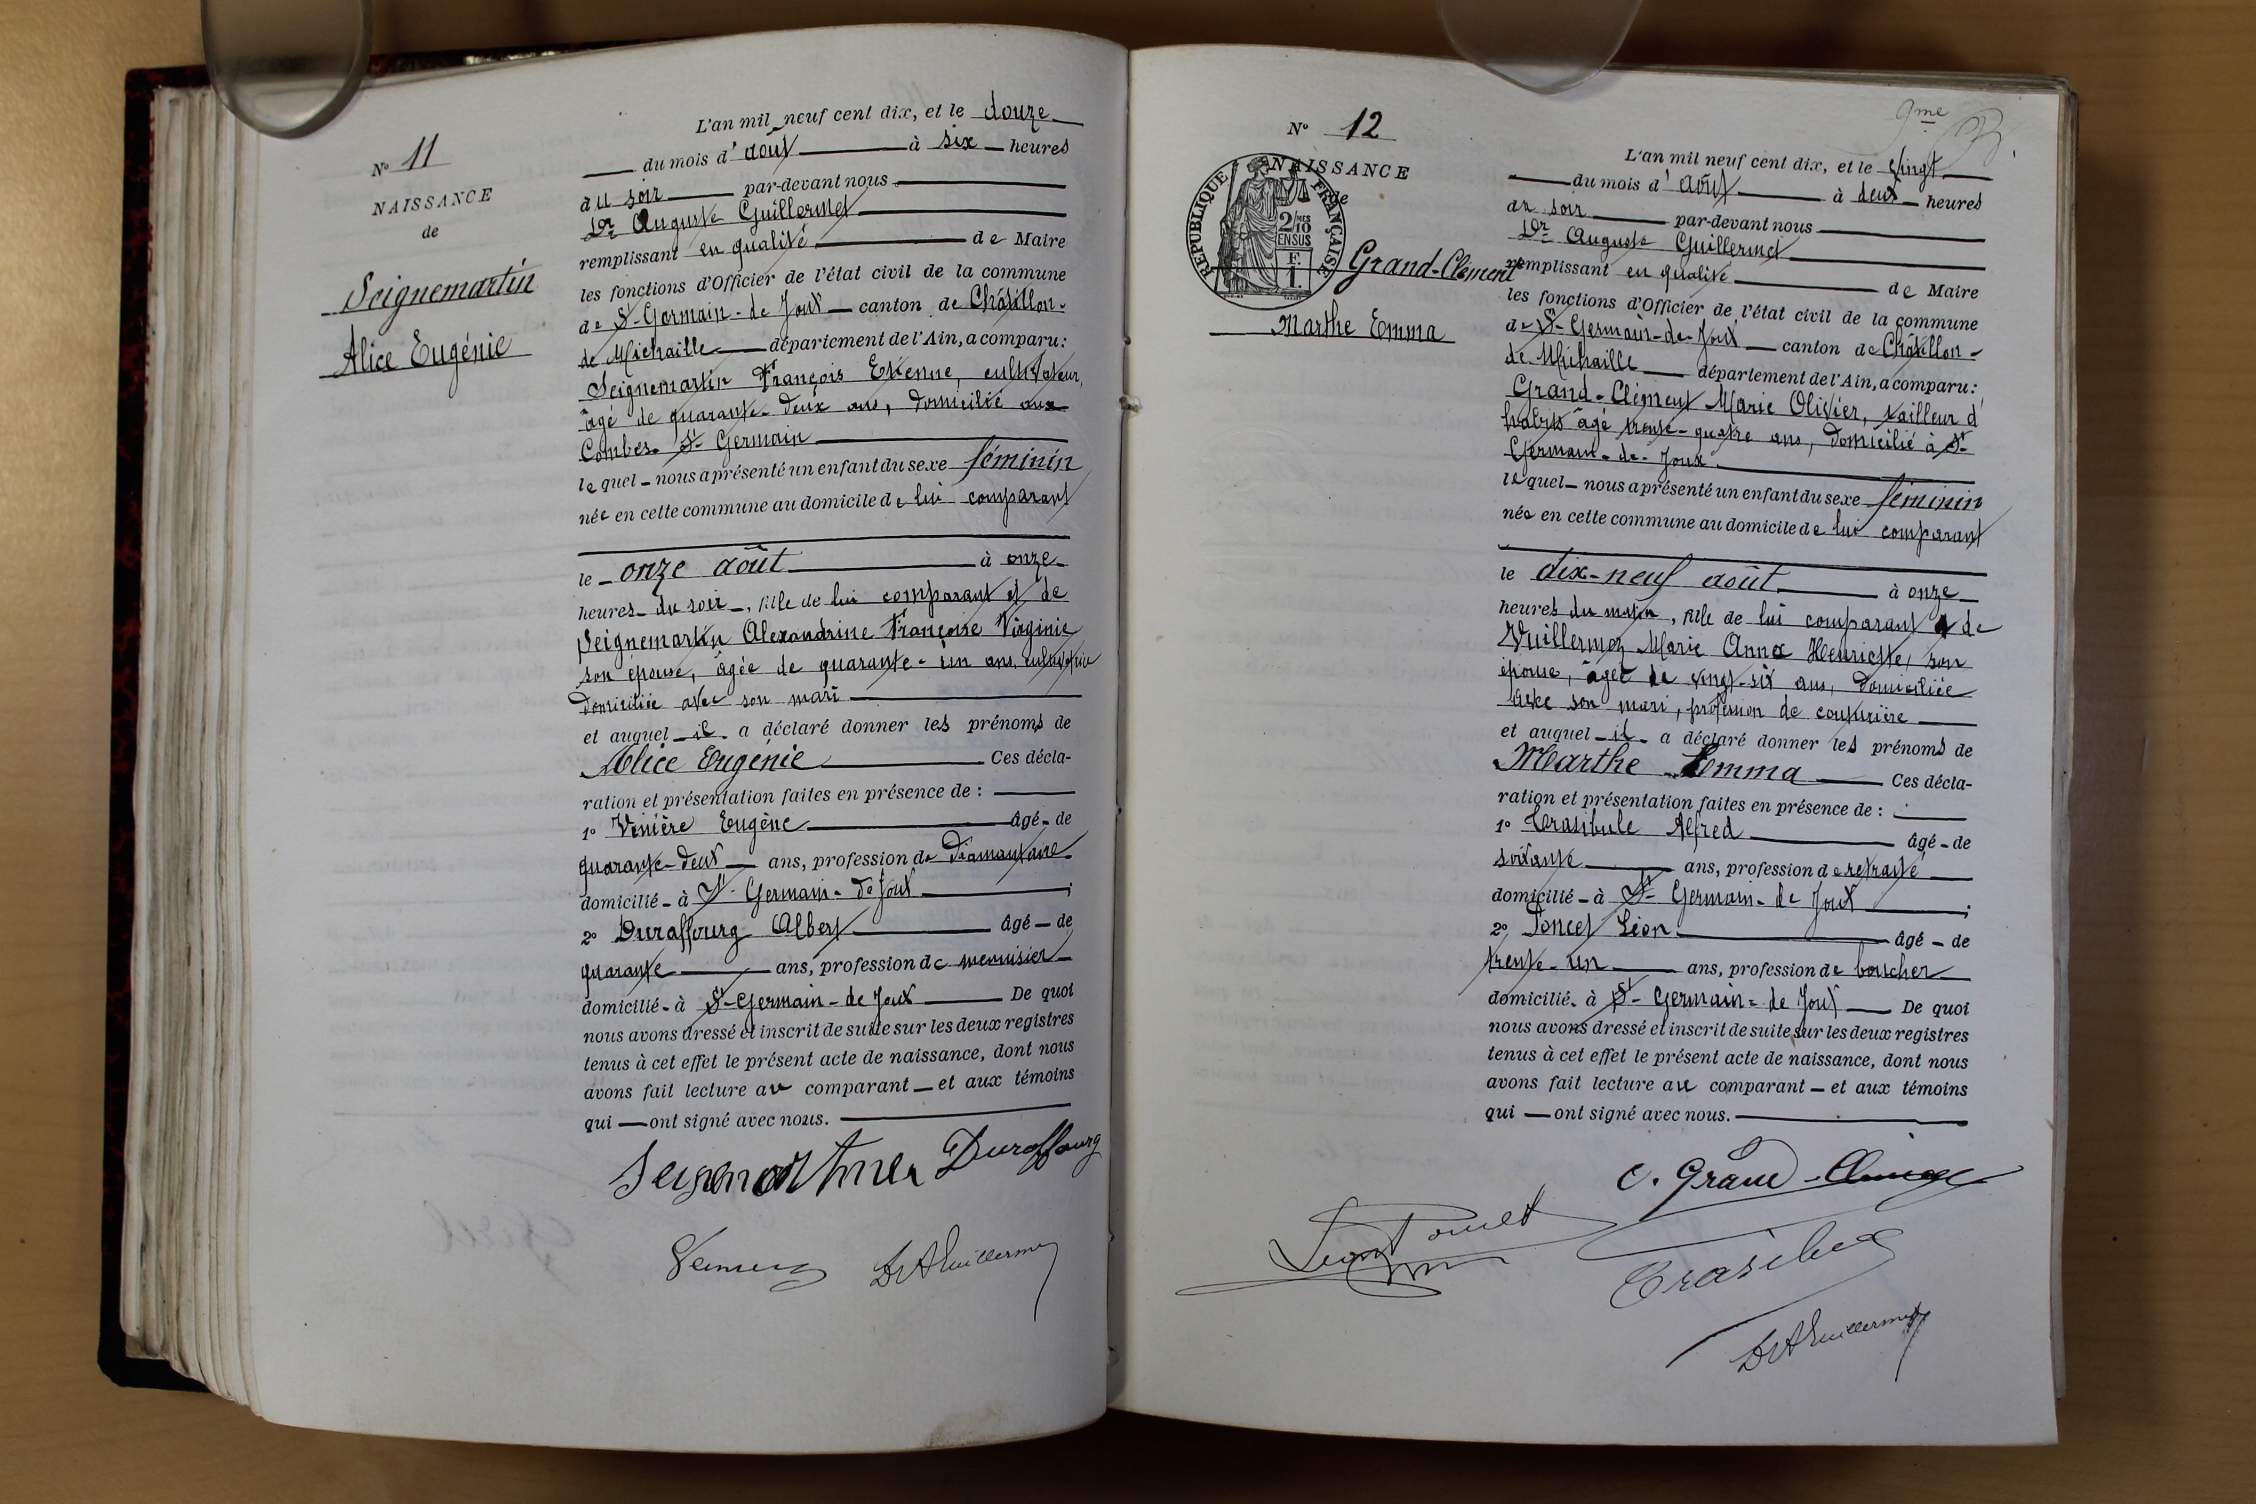 N° 11
NAISSANCE
de
Seignemartin
Alice Eugénie
L'an mil neuf cent dix, et le douze
du mois d'août à six heures
du soir par-devant nous
Dr Auguste Guillermet
remplissant en qualité de Maire
les fonctions d'Officier de l'état civil de la commune
de St-Germain-de Joux canton de Châtillon-
de Michaille département de l'Ain, a comparu:
Seignemartin François Etienne, cultivateur,
âgé de quarante-deux ans, domicilié aux
Combes-St-Germain
lequel nous a présenté un enfant du sexe féminin
née en cette commune au domicile de lui comparant
le onze août à onze
heures du soir, fille de lui comparant et de
Seignemartin Alexandrine Françoise Virginie
son épouse, âgée de quarante-un ans, cultivatrice
domiciliée avec son mari
et auquel il a déclaré donner les prénoms de
Alice Eugénie Ces décla-
ration et présentation faites en présence de :
1° Venière Eugène âgé de
quarante-deux ans, profession de diamantaire
domicilié à St-Germain-de Joux ;
2° Duraffourg Albert âgé de
quarante ans, profession de menuisier
domicilié à St-Germain-de Joux De quoi
nous avons dressé et inscrit de suite sur les deux registres
tenus à cet effet le présent acte de naissance, dont nous
avons fait lecture au comparant et aux témoins
qui ont signé avec nous.
Duraffourg
DrAGuillermet
9me
N° 12
NAISSANCE
de
RÉPUBLIQUE FRANÇAISE
2/10
EN SUS
F.
1.
Grand-Clément
Marthe Emma
L'an mil neuf cent dix, et le vingt
du mois d'août à deux heures
du soir par-devant nous
Dr Auguste Guillermet
remplissant en qualité de Maire
les fonctions d'Officier de l'état civil de la commune
de St-Germain-de-Joux canton de Châtillon-
de Michaille département de l'Ain, a comparu:
Grand-Clément Marie Olivier, tailleur d'
habits âgé trente-quatre ans, domicilié à St-
Germain-de-Joux
lequel nous a présenté un enfant du sexe féminin
née en cette commune au domicile de lui comparant
le dix-neuf août à onze
heures du matin, fille de lui comparant & de
Vuillermoz Marie Anna Henriette, son
épouse, âgée de vingt-six ans, domiciliée
avec son mari, profession de couturière
et auquel il a déclaré donner les prénoms de
Marthe Emma Ces décla-
ration et présentation faites en présence de :
1° Trasibule Alfred âgé de
soixante ans, profession de retraité
domicilié à St-Germain-de Joux ;
2° Poncet Léon âgé de
trente-un ans, profession de boucher
domicilié à St-Germain-de Joux De quoi
nous avons dressé et inscrit de suite sur les deux registres
tenus à cet effet le présent acte de naissance, dont nous
avons fait lecture au comparant et aux témoins
qui ont signé avec nous.
Léon Poncet
DrAGuillermet